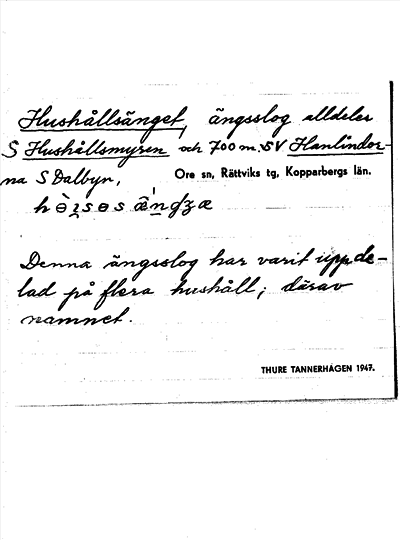 Hushållsänget, ängsslog alldeles
S Hushållsmyren och 700 m. SV Hanlindor-
na S Dalbyn, Ore sn, Rättviks tg, Kopparbergs län.
Denna ängsslog har varit uppde-
lad på flera hushåll; därav
namnet.
THURE TANNERHAGEN 1947.